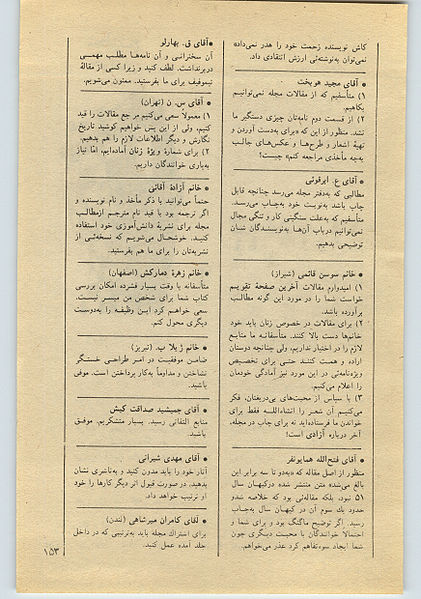 کاش نویسنده زحمت خود را هدر نمی‌داد،
نمی‌توان به‌نوشته‌ئی ارزش انتقادی داد.
● آقای مجید هوبخت
۱) متأسفیم که از مقالات مجله نمی‌توانیم
بکاهیم.
۲) از قسمت دوم نامه‌تان چیزی دستگیر ما
نشد. منظور از این که «برای به‌دست آوردن و
تهیهٔ اشعار و طرح‌ها و عکس‌های جالب
به‌چه مأخذی مراجعه کنم» چیست؟
● آقای ع. ابرقوئی
مطالبی که به‌دفتر مجله می‌رسد چنانچه قابل
چاپ باشد به‌نوبت خود به‌چاپ می‌رسد.
متأسفیم که به‌علت سنگینی کار و تنگی مجال
نمی‌توانیم درباب آن‌ها به‌نویسندگان شان
توضیحی بدهیم.
● خانم سوسن قائمی (شیراز)
۱) امیدواریم مقالات آخرین صفحهٔ تقویم
خواست شما را در مورد این گونه مطالب
برآورده باشد.
۲) برای مقالات در خصوص زنان باید خود
خانم‌ها دست بالا کنند. متأسفانه ما منابع
لازم را در اختیار نداریم، ولی چنانچه دوستان
اراده و همت کنند حتی برای تخصیص
ویژه‌نامه‌ئی در این مورد نیز آمادگی خودمان
را اعلام می‌کنیم.
۳) با سپاس از محبت‌های بی‌دریغتان، فکر
می‌کنیم آن شعر را انشاءالله فقط برای
خواندن ما فرستاده‌اید نه برای چاپ در مجله.
آخر درباره آزادی است!
● آقای فتح‌الله همایونفر
منظور از اصل مقاله که «به‌دو تا سه برابر این
بالغ می‌شد» متن منتشر شده در کیهان سال
۵۱ نبود، بلکه مقاله‌ئی بود که خلاصه شدو
حدود یك سوم آن در کیهان سال به‌چاپ
رسید. اگر توضیح ما گنگ بود و برای شما و
احتمالا خوانندگان با محبت دیگری چون
شما ایجاد سوءتفاهم کرد عذر می‌خواهم.
● آقای ق. بهارلو
آن سخنرانی و آن نامه‌ها مطلب مهمی
دربرنداشت. لطف کنید و زیرا کسی از مقالهٔ
نیموفیف برای ما بفرستید. ممنون می‌شویم.
● آقای س. ن (تهران)
۱) معمولا سعی می‌کنیم مرجع مقالات را قید
کنیم، ولی از این پس خواهیم کوشید تاریخ
نگارش و دیگر اطلاعات لازم را هم بدهیم.
۲) برای شمارهٔ ویژهٔ زنان آماده‌ایم، امّا نیاز
به‌یاری خوانندگان داریم.
● خانم آزادهٔ آقائی
حتماً می‌توانید با ذکر مأخذ و نام نویسنده و
اگر ترجمه بود با قید نام مترجم ازمطالب
مجله برای نشریهٔ دانش‌آموزی خود استفاده
کنید. خوشحال می‌شویم که نسخه‌ئی از
نشریه‌تان را برای ما هم بفرستید.
● خانم زهرهٔ دمارکش (اصفهان)
متأسفانه با وقت بسیار فشرده امکان بررسی
کتاب شما برای شخص من میسر نیست.
سعی خواهم کرد این وظیفه را به‌دوست
دیگری محول کنم.
● خانم ژیلا پ. (تبریز)
ضامن موفقیت در امر طراحی خستگی
نشناختن و مداوماً به‌کار پرداختن است. موفق
باشید.
● آقای جمیشید صداقت کیش
منابع التفاتی رسید. بسیار متشکریم. موفق
باشید.
● آقای مهدی شیرانی
آثار خود را باید مدون کنید و به‌ناشری نشان
بدهید. در صورت قبول اثر دیگر کارها را خود
او ترتیب خواهد داد.
● آقای کامران میرشاهی (لندن)
برای اشتراك مجله باید به‌ترتیبی که در داخل
جلد آمده عمل کنید.
۱۵۳